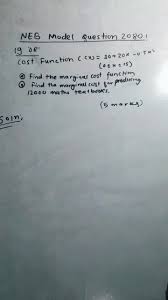 NEB Model Question 2080.1
19 OR
Cost Function C(x) = 30+20x-0.5x²
(0≤x≤15)
a) find the marginal cost function
b) find the marginal cost for producing
12000 maths textbooks.
(5 marks)
Soln,